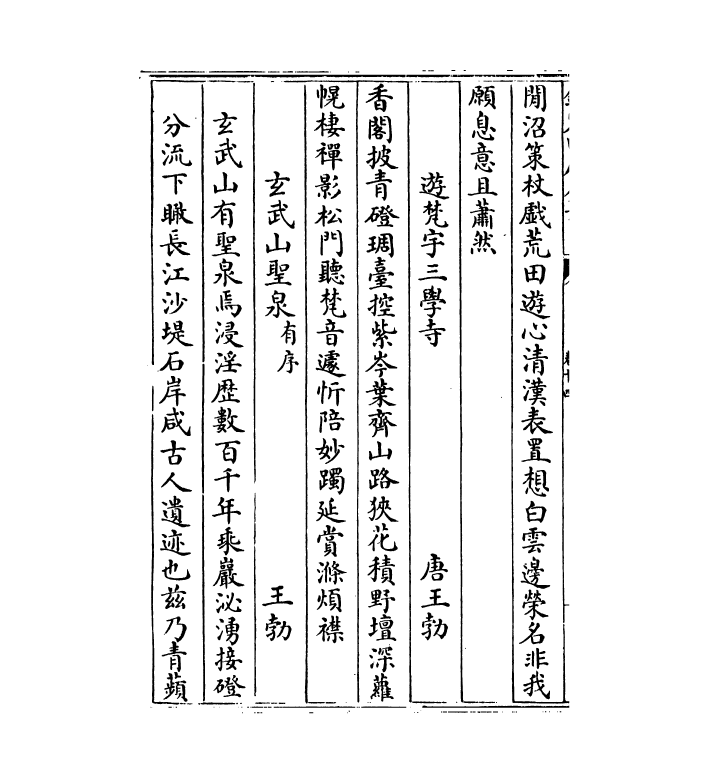 閒沼策杖戲荒田遊心清漢表置想白雲邊榮名非我
願息意且蕭然
遊梵宇三學寺 唐王勃
香閣披青磴琱臺控紫岑葉齊山路狹花積野壇深蘿
幌棲禪影松門聽梵音遽忻陪妙躅延賞滌煩襟
玄武山聖泉有序 王勃
玄武山有聖泉焉浸淫歴數百千年乘巖泌湧接磴
分流下瞰長江沙堤石岸咸古人遺迹也茲乃青蘋